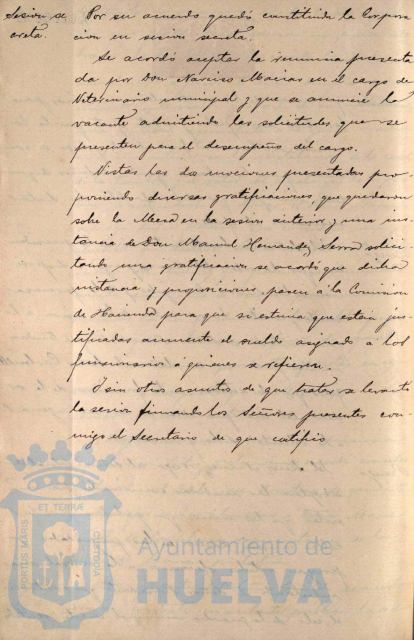 Sesión se
creta.
Por su acuerdo quedó constituida la Corpora
cion en sesion secreta.
Se acordó aceptar la renuncia presenta
da por Don Narciso Macias en el cargo de
Veterinario municipal y que se anuncie la
vacante admitiendo las solicitudes que se
presenten para el desempeño del cargo.
Vistas las dos mociones presentadas pro-
poniendo diversas gratificaciones, que quedaron
sobre la Mesa en la sesion anterior y una ins-
tancia de Don Manuel Hernandez Serra solici-
tando una gratificacion se acordó que dicha
instancia y proposiciones pasen á la Comision
de Hacienda para que si estima que estan jus-
tificadas aumente el sueldo asignado á los
funcionarios á quienes se refieren.
Y sin otros asuntos de que tratar se levanta
la sesion firmando los Señores presentes con-
migo el Secretario de que certifico
PORTUS MARIS
ET TERRÆ
CUSTODIA
Ayuntamiento de
HUELVA